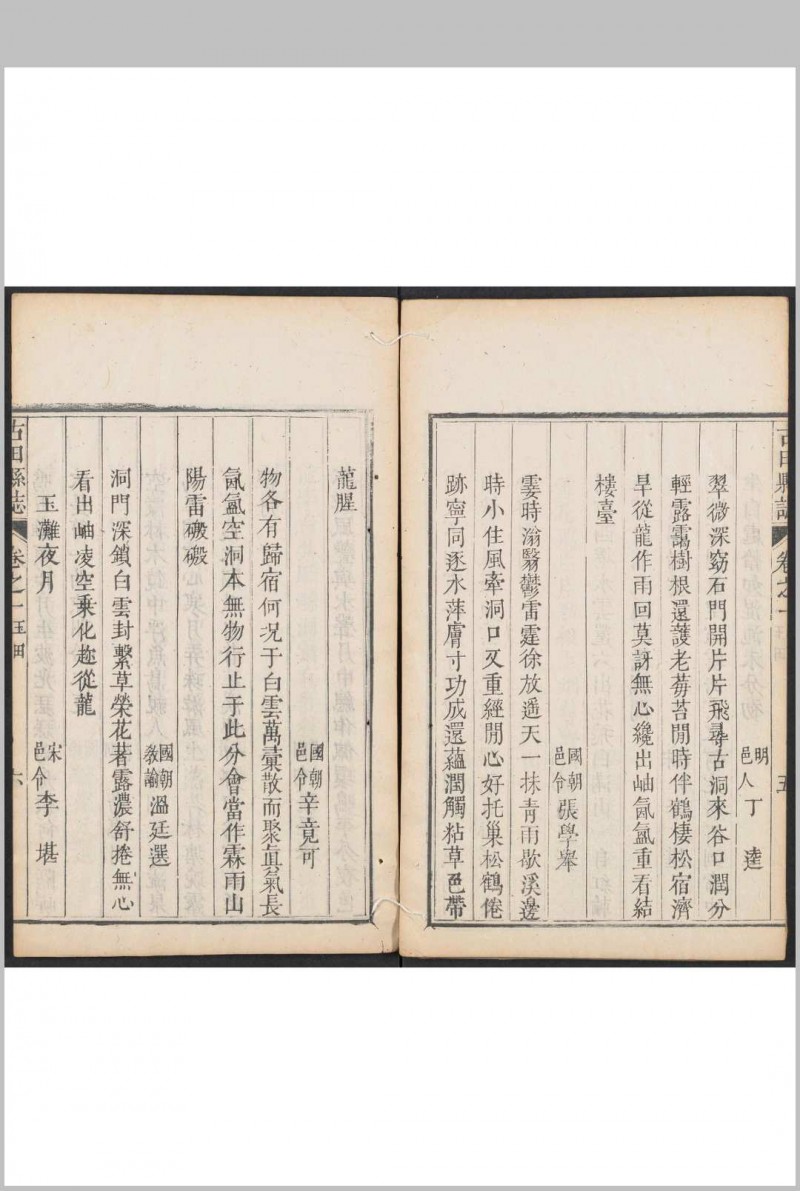 古田縣誌 卷之一 五
明邑人丁逵
翠微深窈石門開片片飛尋古洞來谷口潤分
輕露靄樹根還護老莓苔閒時伴鶴棲松宿濟
旱從龍作雨回莫訝無心纔出岫氤氳重看結
樓臺
國朝邑令張學舉
霎時滃翳鬱雷霆徐放遥天一抹青雨歇溪邊
時小住風牽洞口又重經閒心好托巢松鶴倦
跡寧同逐水萍膚寸功成還蘊潤觸粘草色帶
龍腥
國朝邑令辛竟可
物各有歸宿何况于白雲萬彚散而聚眞氣長
氤氳空洞本無物行止于此分會當作霖雨山
陽雷磤磤
國朝教諭温廷選
洞門深鎖白雲封繫草縈花著露濃舒捲無心
看出岫凌空乗化趂從龍
玉灘夜月
宋邑令李堪
古田縣誌 卷之一 六